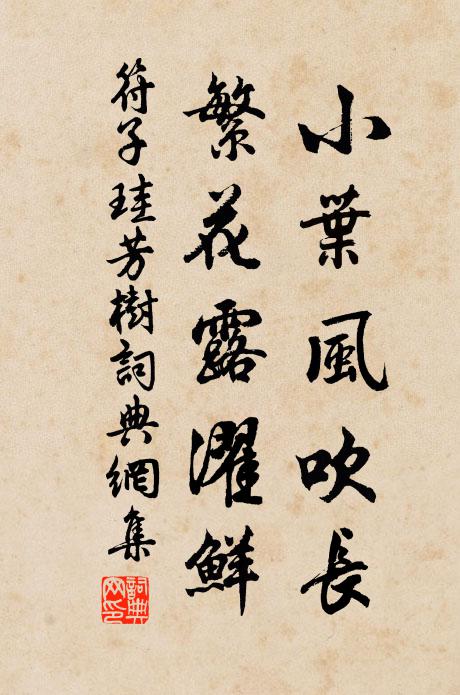 小葉風吹長
繁花露濯鮮
符子珪芳樹詞典網集
詞典網印